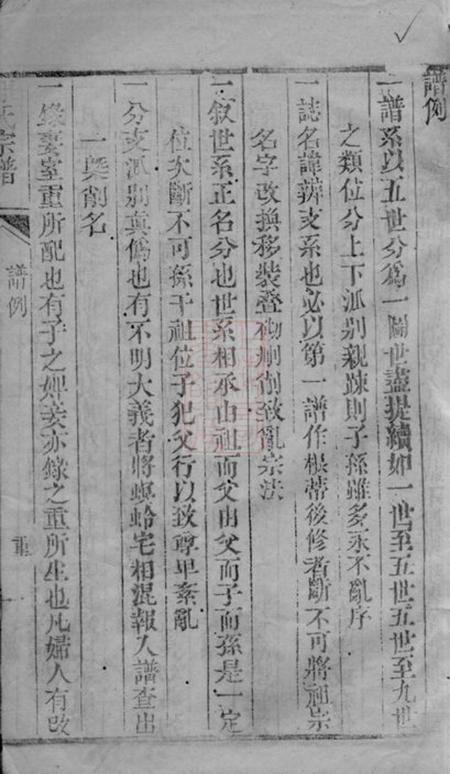 譜例
一譜系以五世分爲一圖世盡提續如一世至五世五世至九世
之類位分上下派别親疎則子孫雖多永不亂序
一誌名諱辨支系也必以第一譜作根蒂後修者斷不可將祖宗
名字改換移裝疊砌刪削致亂宗法
一叙世系正名分也世系相承由祖而父由父而子而孫是一定
位次斷不可孫干祖位子犯父行以致尊卑紊亂
一分支派别眞僞也有不明大義者將螟蛉宅相混報入譜查出
一槩削名
一錄妻室重所配也有子之婢妾亦錄之重所生也凡婦人有改
氏宗譜
譜例